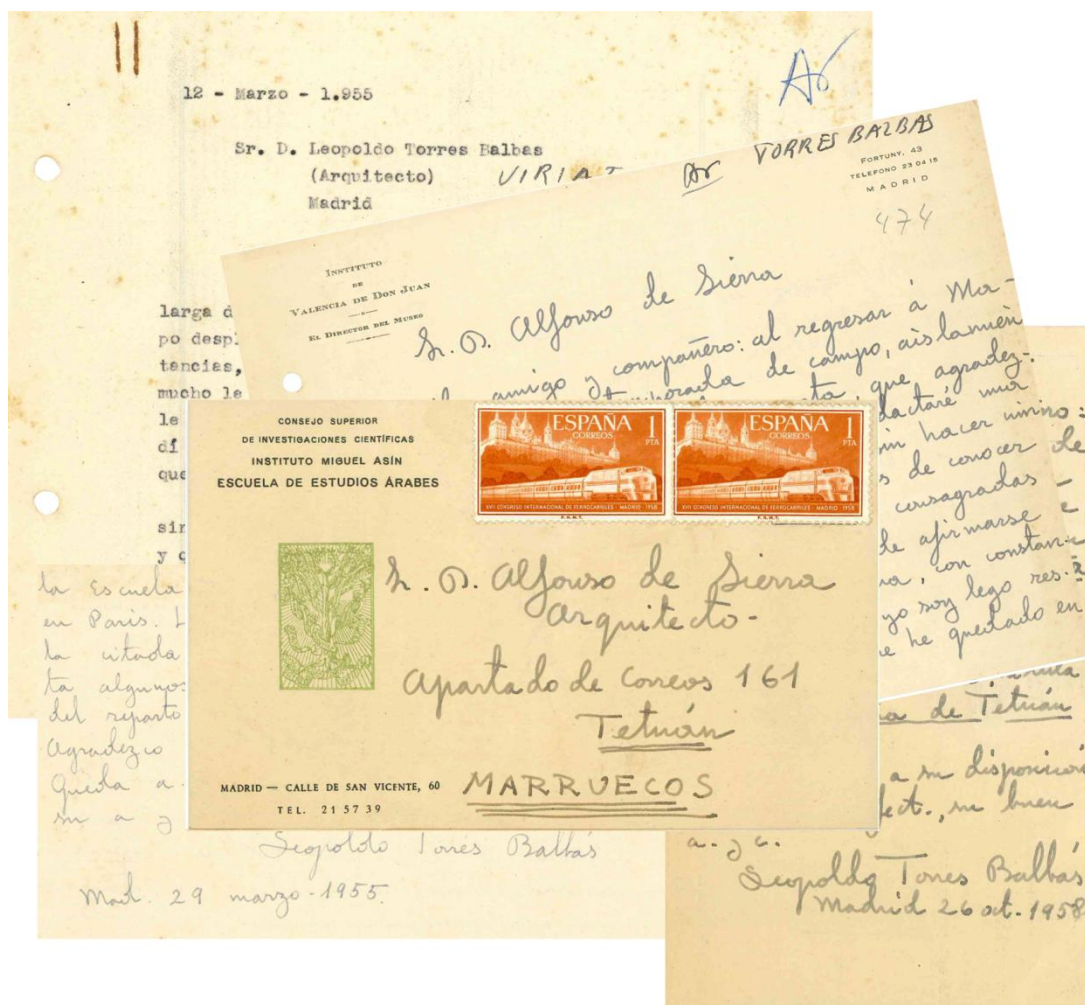 12 - Marzo - 1.955
Ar
Sr. D. Leopoldo Torres Balbas
(Arquitecto)
Madrid
larga d
po despl
tancias,
mucho le
le
dí
que
sin
y q
VIRIAT Ar TORRES BALBAS
FORTUNY, 43
TELEFONO 23 04 15
MADRID
474
INSTITUTO
DE
VALENCIA DE DON JUAN
EL DIRECTOR DEL MUSEO
Sr. D. Alfonso de Sierra
amigo y compañero: al regresar á Ma-
temporada de campo, aislamien
ta, que agradez-
dactaré una
sin hacer
s de conocer
consagradas
de afirmarse
na, con constan
yo soy lego res-
e he quedado en
CONSEJO SUPERIOR
DE INVESTIGACIONES CIENTÍFICAS
INSTITUTO MIGUEL ASÍN
ESCUELA DE ESTUDIOS ÁRABES
ESPAÑA
CORREOS
1
PTA
XVII CONGRESO INTERNACIONAL DE FERROCARRILES - MADRID - 1958
F.N.M.T.
ESPAÑA
CORREOS
1
PTA
XVII CONGRESO INTERNACIONAL DE FERROCARRILES - MADRID - 1958
F.N.M.T.
Sr. D. Alfonso de Sierra
Arquitecto-
Apartado de Correos 161
Tetuán
MARRUECOS
MADRID — CALLE DE SAN VICENTE, 60
TEL. 21 57 39
la Escuela
en Paris. L
la citada
ta algunos
del reparto
Agradezco
Queda a
su a y
Leopoldo Torres Balbás
Mad. 29 marzo-1955.
na de Tetuán
a su disposición
fect., su buen
a. y c.
Leopoldo Torres Balbás
Madrid 26 oct. 1958